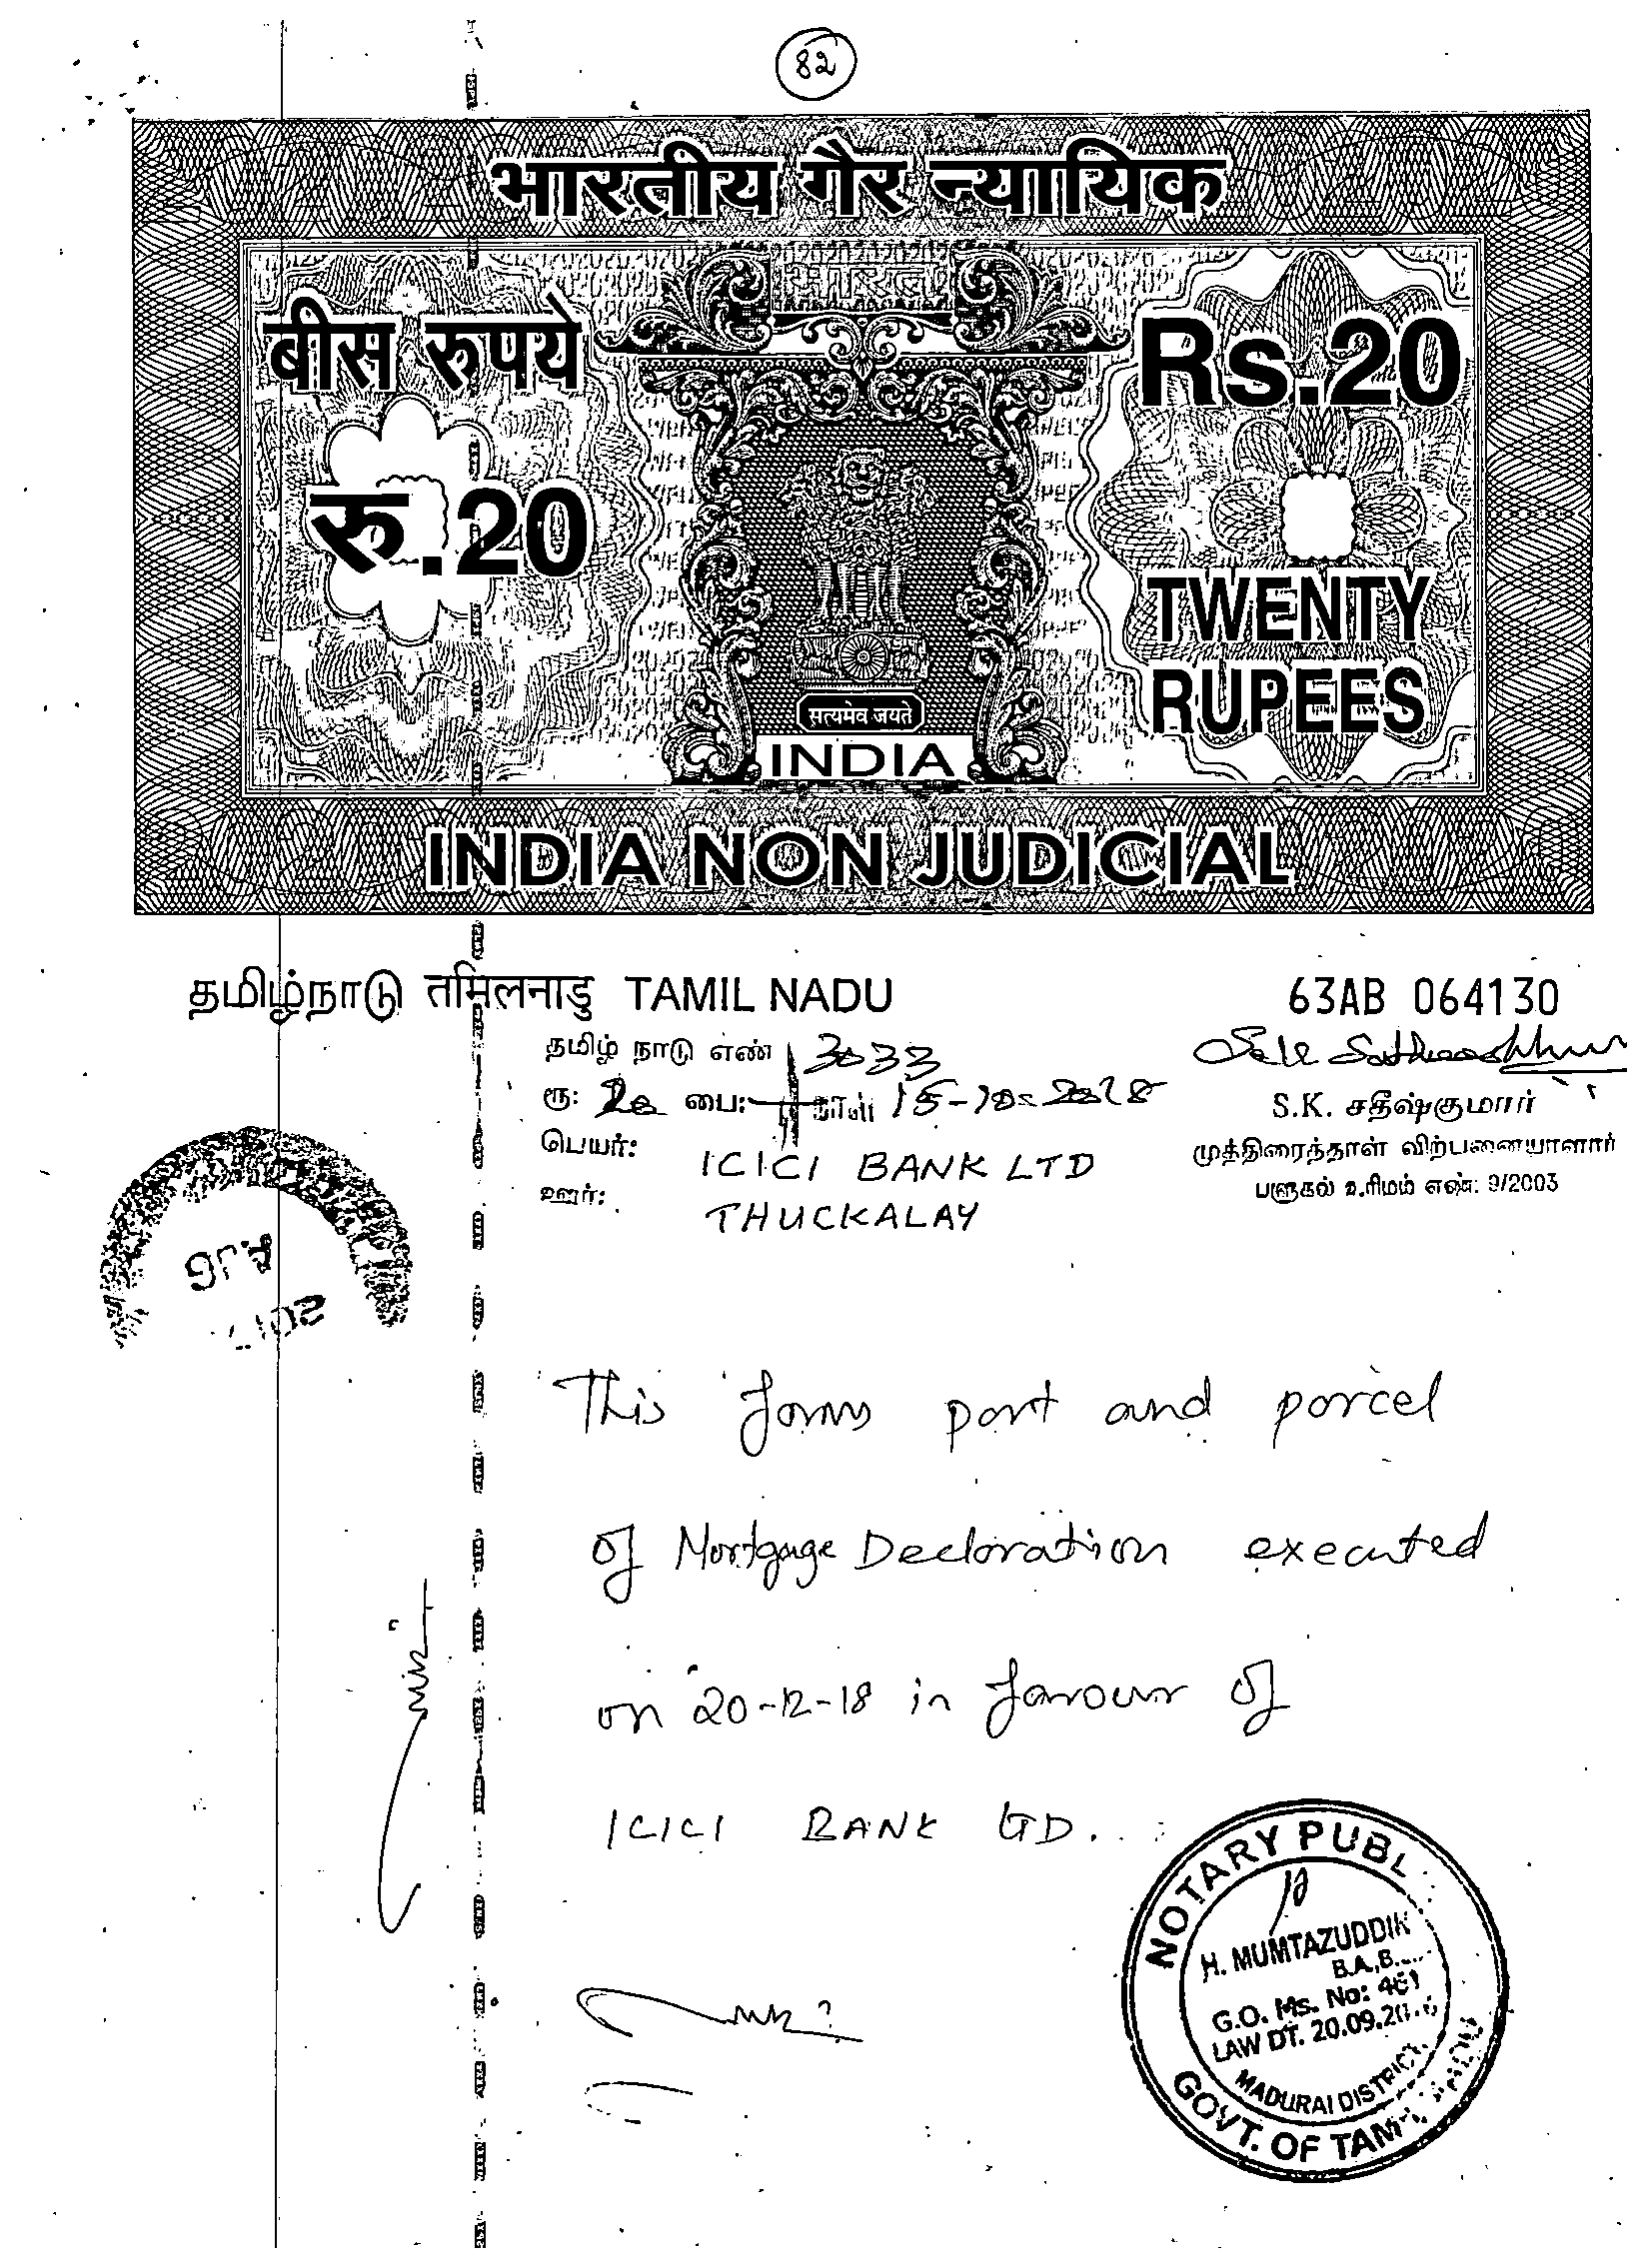 82
भारतीय गैर न्यायिक
भारत
बीस रुपये
Rs.20
रु.20
TWENTY
RUPEES
सत्यमेव जयते
INDIA
INDIA NON JUDICIAL
தமிழ்நாடு तमिलनाडु TAMIL NADU
63AB 064130
தமிழ் நாடு எண் 3033
ரூ: 20 பை: நாள் 15-10-2018
S.K. சதீஷ்குமார்
பெயர்: ICICI BANK LTD
முத்திரைத்தாள் விற்பனையாளார்
ஊர்: THUCKALAY
பளுகல் உரிமம் எண்: 9/2003
This forms part and parcel
of Mortgage Declaration executed
on 20-12-18 in favour of
ICICI BANK LTD.
NOTARY PUBL
H. MUMTAZUDDIN
B.A.,B.
G.O. Ms. No: 461
LAW DT. 20.09.20
MADURAI DISTRICT
GOVT. OF TAMIL NADU